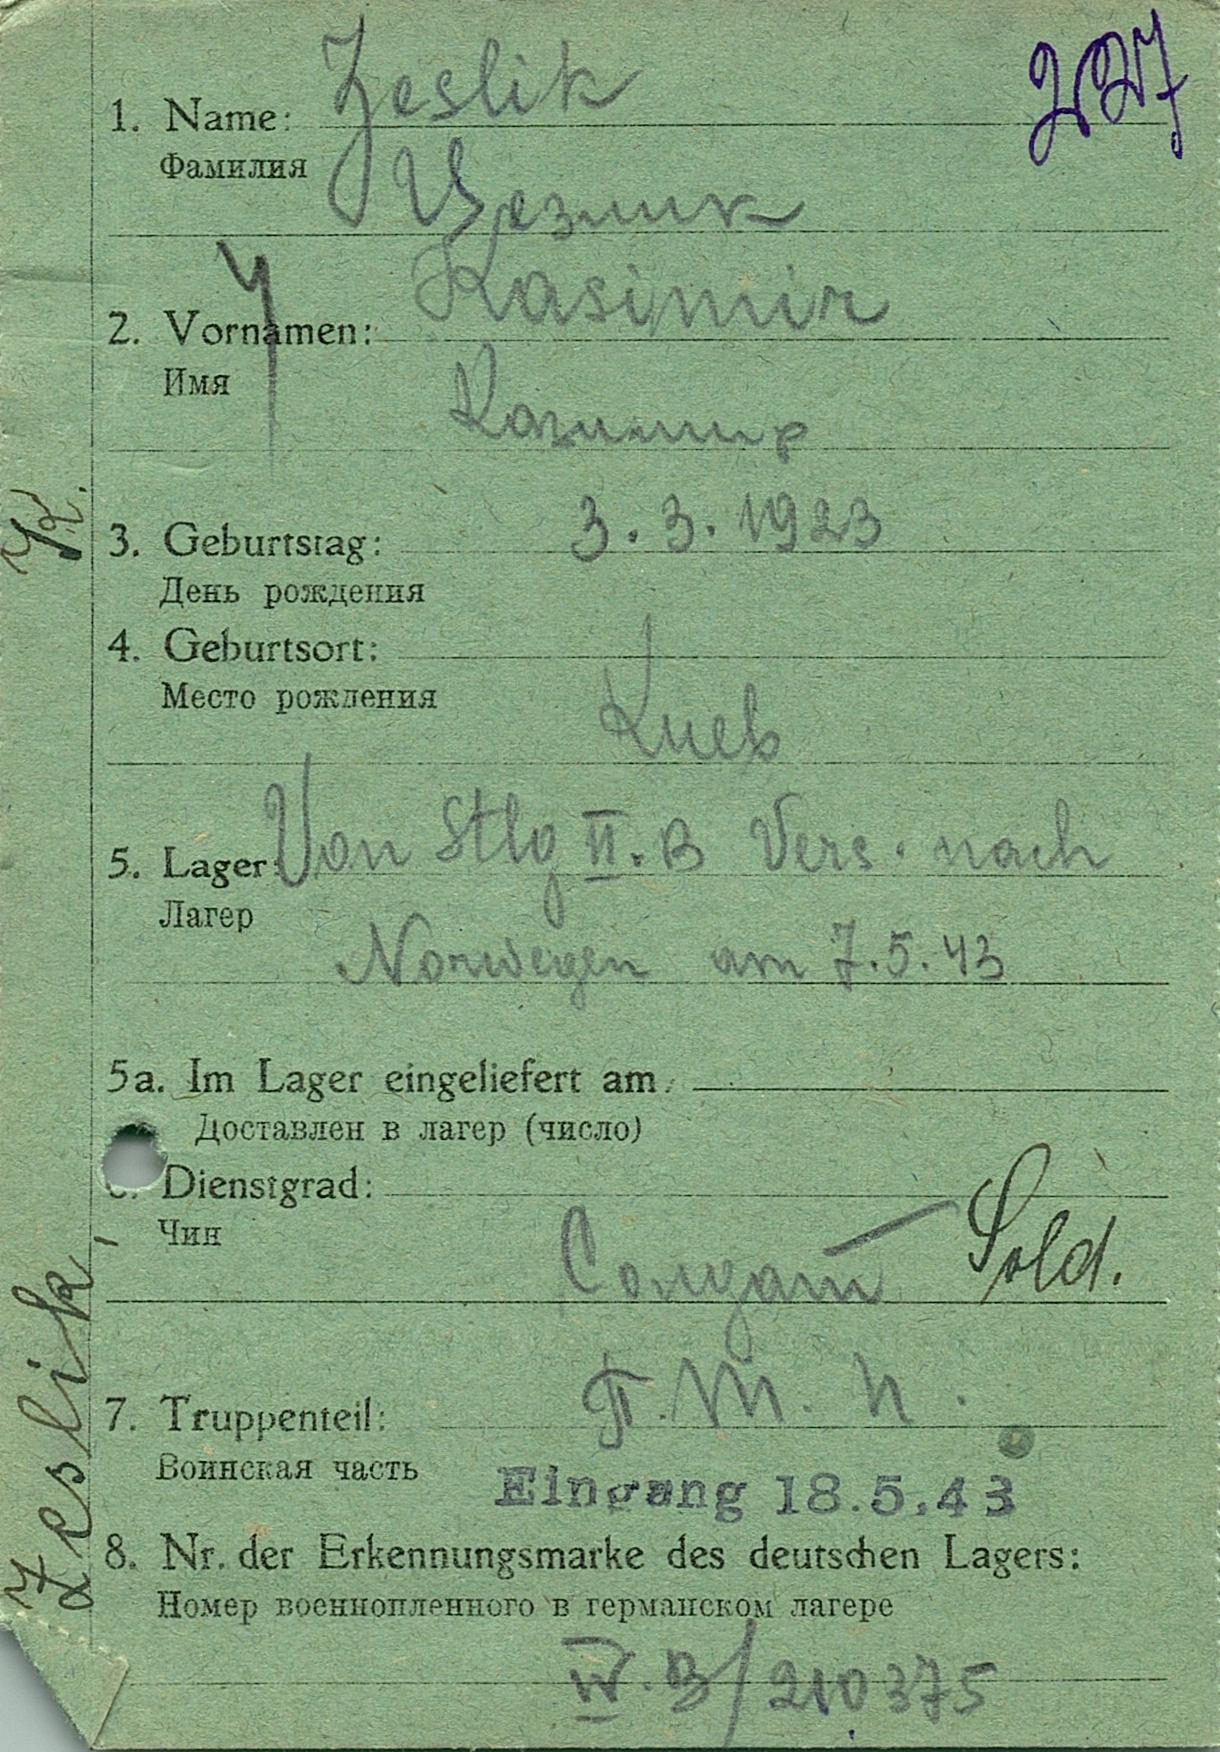 227
Zeslik
1. Name:
Фамилия
Цезлик
Kasimir
2. Vornamen:
Имя
Казимир
3. Geburtstag: 3.3.1923
День рождения
4. Geburtsort:
Место рождения
Киев
5. Lager: Von Stlg II.B Vers. nach
Лагер
Norwegen am 7.5.43
5a. Im Lager eingeliefert am:
Доставлен в лагер (число)
6. Dienstgrad:
Чин
Солдат — Sold.
7. Truppenteil: П.М.Н.
Воинская часть
Eingang 18.5.43
8. Nr. der Erkennungsmarke des deutschen Lagers:
Номер военнопленного в германском лагере
IV.B/210375
Zeslik,
K.